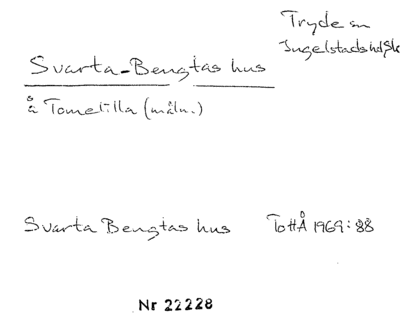 Tryde sn
Ingelstads hd, Sk
Svarta-Bengtas hus
å Tomelilla (måln.)
Svarta Bengtas hus TottÅ 1969:88
Nr 22228